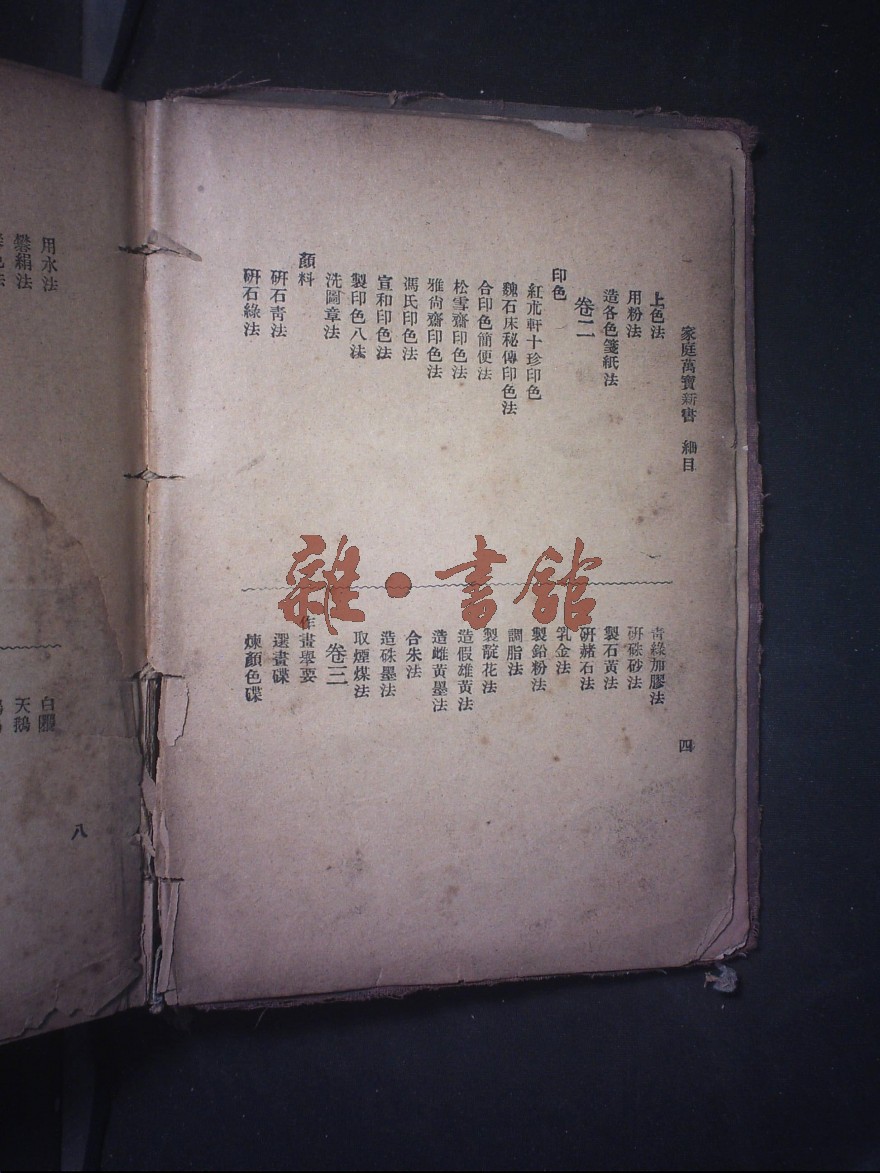 家庭萬寶新書　細目
四
上色法
用粉法
造各色箋紙法
卷二
印色
紅朮軒十珍印色
魏石床秘傳印色法
合印色簡便法
松雪齋印色法
雅尙齋印色法
馮氏印色法
宣和印色法
製印色八法
洗圖章法
顏料
研石靑法
研石綠法
靑綠加膠法
研硃砂法
製石黃法
研赭石法
乳金法
製鉛粉法
調脂法
製靛花法
造假雄黃法
造雌黃墨法
合朱法
造硃墨法
取煙煤法
卷三
作畫擧要
選畫碟
煉顏色碟
雜·書館
用水法
礬絹法
白鷳
天鵝
八